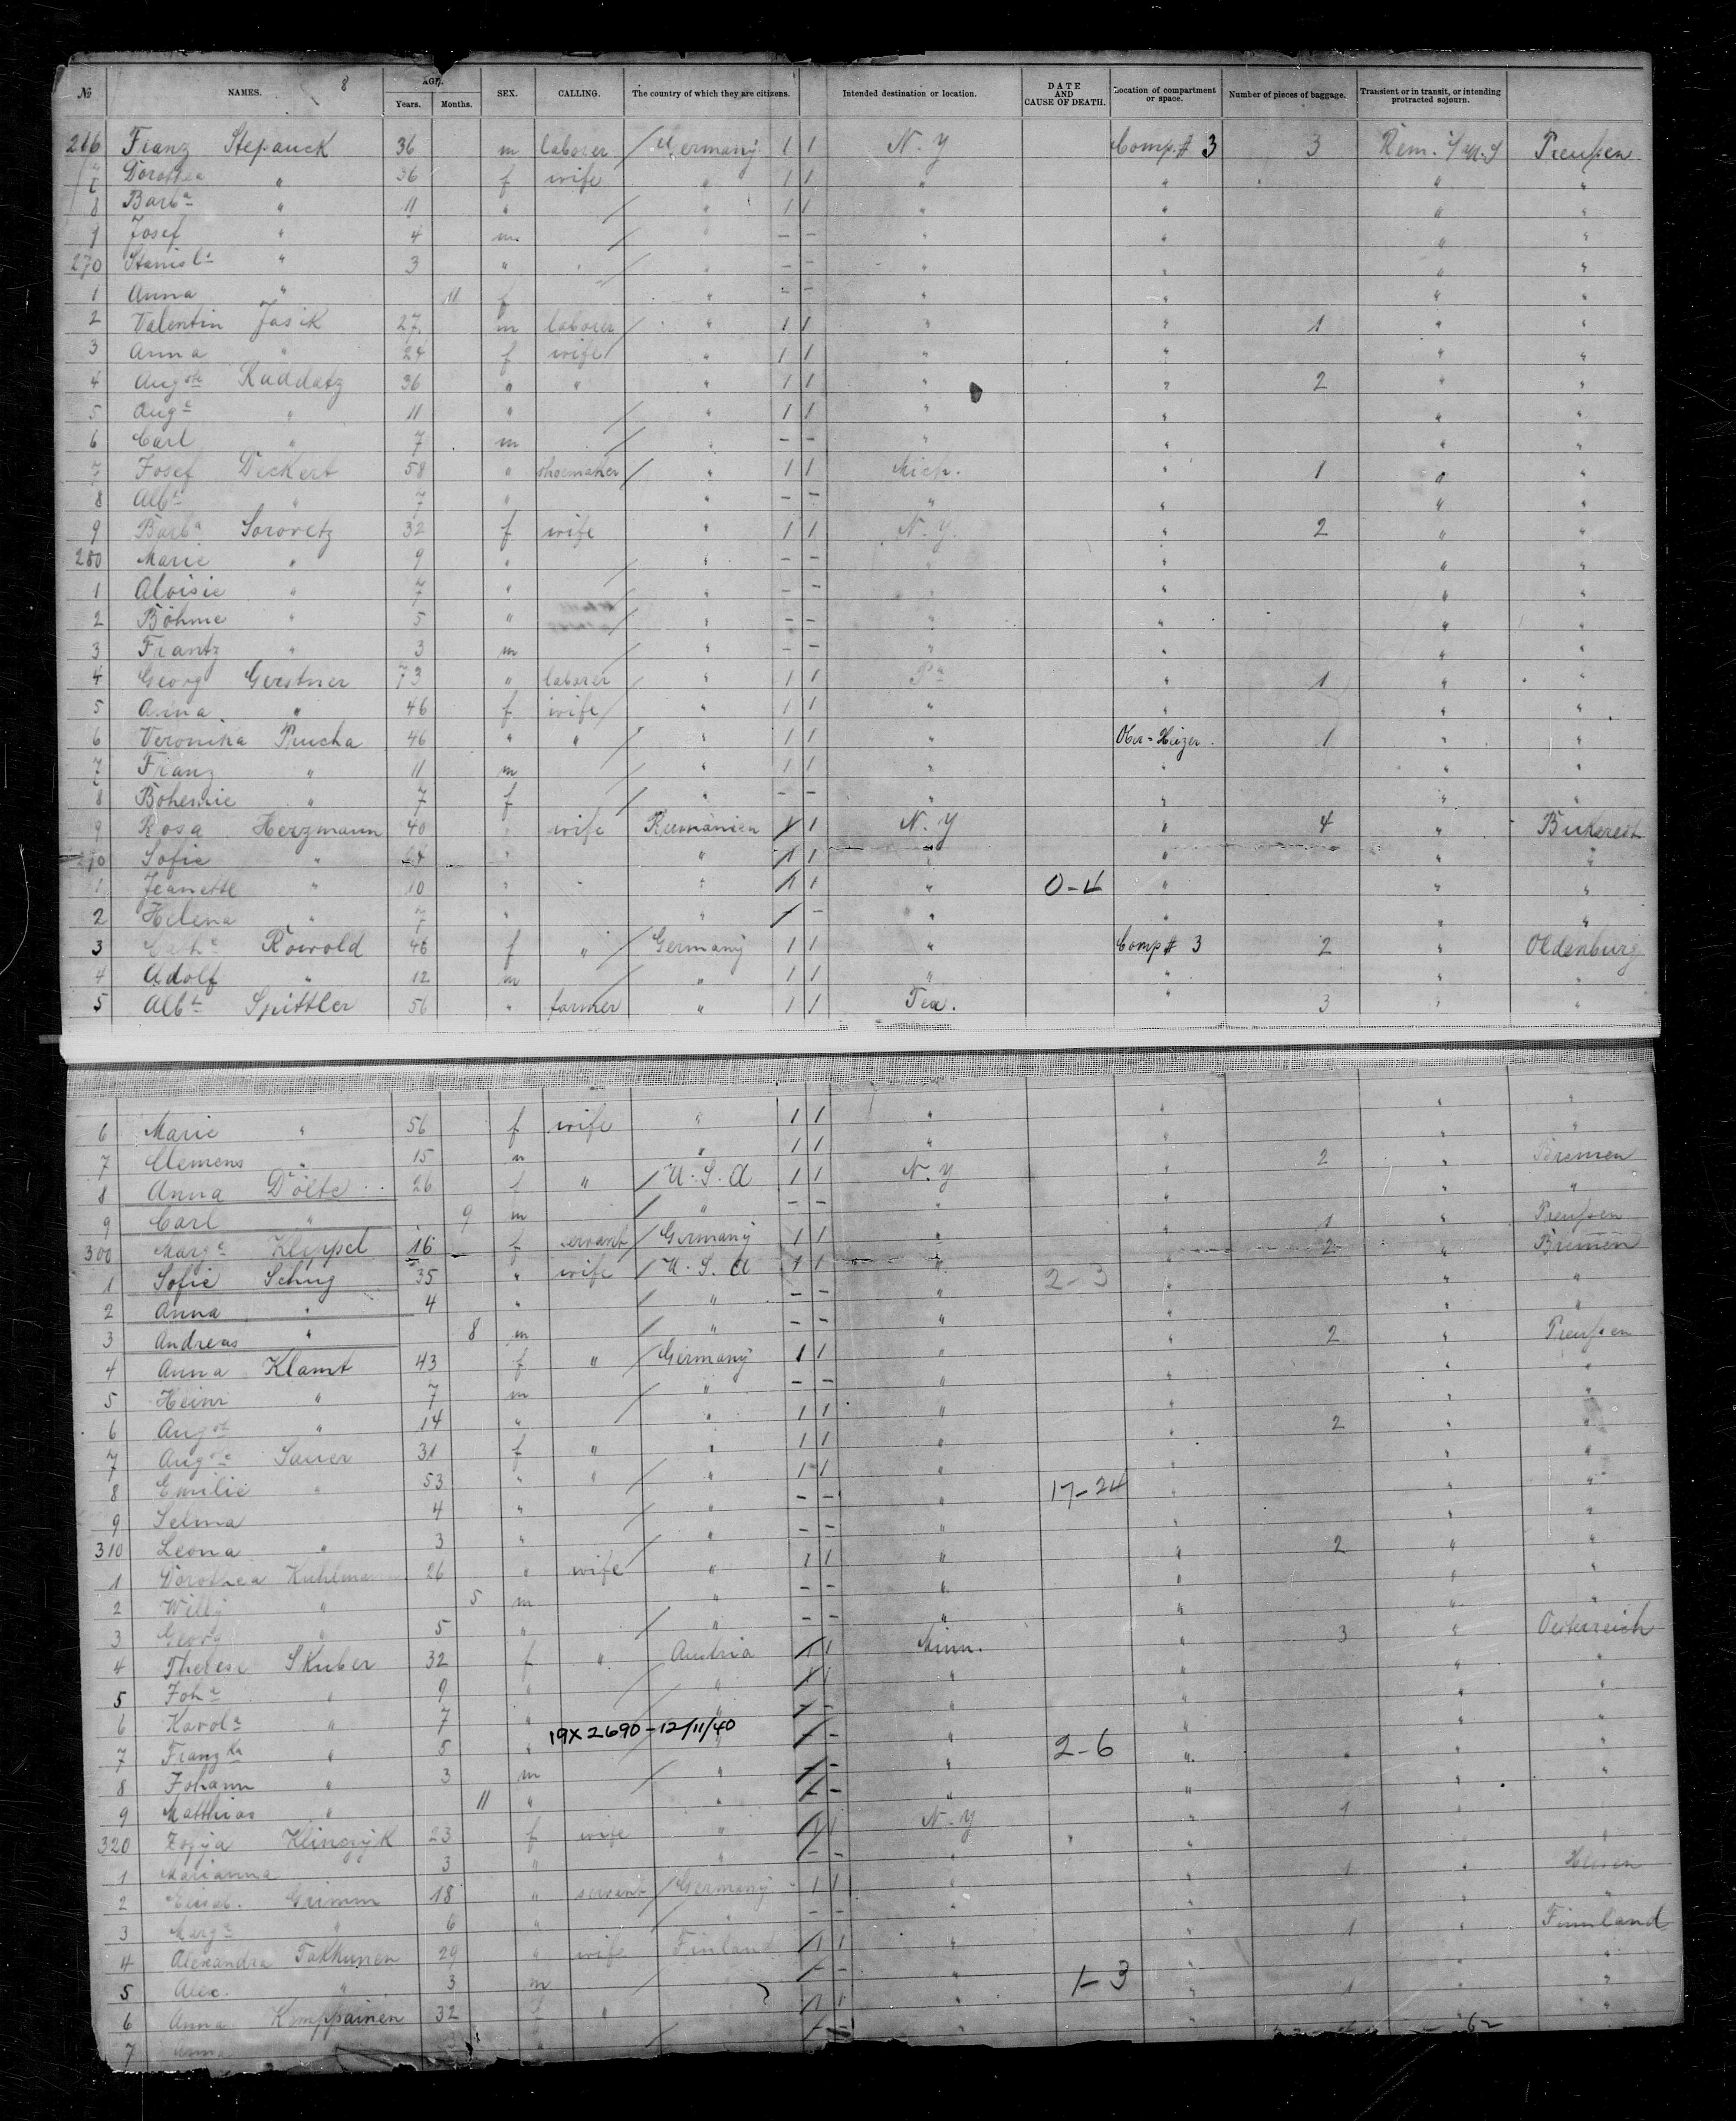 8
№ NAMES. AGE. Years. Months. SEX. CALLING. The country of which they are citizens. Intended destination or location. DATE AND CAUSE OF DEATH. Location of compartment or space. Number of pieces of baggage. Transient or in transit, or intending protracted sojourn.
266 Franz Stepanek 36 m laborer / Germany 1 1 N. Y Comp. # 3 3 Rem. i/ U. S Preußen
7 Dorothea " 36 f wife " 1 1 " " " "
8 Barbª " 11 " / " 1 1 " " " "
9 Josef " 4 m / " - - " " " "
270 Stanisl " 3 " / " - - " " " "
1 Anna " 11 f " - - " " " "
2 Valentin Jasik 27 m laborer / " 1 1 " " 1 " "
3 Anna " 24 f wife " 1 1 " " " "
4 Augste Raddatz 36 " " " 1 1 " " 2 " "
5 Augᵉ " 11 " / " 1 1 " " " "
6 Carl " 7 m / " - - " " " "
7 Josef Deckert 58 " shoemaker / " 1 1 Mich. " 1 " "
8 Albᵗ " 7 " " - - " " " "
9 Barbª Sorovetz 32 f wife " 1 1 N. Y. " 2 " "
280 Marie " 9 " / " - - " " " "
1 Aloisie " 7 " / " - - " " " "
2 Böhme " 5 " / " - - " " " "
3 Frantz " 3 m / " - - " " " "
4 Georg Gerstner 73 " laborer / " 1 1 Pª " 1 " "
5 Anna " 46 f wife / " 1 1 " " " "
6 Veronika Prucha 46 " " / " 1 1 " Ober-Heizer. 1 " "
7 Franz " 11 m / " 1 1 " " " "
8 Bohemie " 7 f / " - - " " " "
9 Rosa Herzmann 40 " wife Rumänien 1 1 N. Y " 4 " Bukarest
290 Sofie " 24 " " 1 1 " " " "
1 Jeanette " 10 " " 1 1 " 0-4 " " "
2 Helena " 7 " " / - " " " "
3 Cathᵉ Rowold 46 f " / Germany 1 1 " Comp # 3 2 " Oldenburg
4 Adolf " 12 m / " 1 1 " " " "
5 Albᵗ Spittler 56 " farmer " 1 1 Tex. " 3 " "
6 Marie " 56 f wife " 1 1 " " " "
7 Clemens " 15 m " 1 1 " " " "
8 Anna Dölte 26 f " / U. S. A 1 1 N. Y " 2 " Bremen
9 Carl " 9 m / " - - " " " "
300 Margᵉ Klippel 16 f servant / Germany 1 1 " " 1 " Preußen
1 Sofie Schug 35 " wife / U. S. A 1 1 " 2-3 " 2 " Bremen
2 Anna " 4 " / " - - " " " "
3 Andreas " 8 m / " - - " " " "
4 Anna Klamt 43 f " / Germany 1 1 " " 2 " Preußen
5 Heinr " 7 m / " - - " " " "
6 Augst " 14 " " 1 1 " " " "
7 Augste Sauer 31 f " " 1 1 " " 2 " "
8 Emilie " 53 " " / " 1 1 " 17-24 " " "
9 Selma 4 " / " - - " " " "
310 Leona " 3 " / " - - " " " "
1 Dorothea Kuhlmann 26 " wife " 1 1 " " 2 " "
2 Willy " 5 m " - - " " " "
3 Georg " 5 " / " - - " " " "
4 Therese Skuber 32 f " Austria 1 1 Minn. " 3 " Oesterreich
5 Johª " 9 " / " 1 1 " " " "
6 Karolª " 7 " / " / - " " " "
19X2690-12/11/40
7 Franzka " 5 " " / - " 2-6 " " "
8 Johann " 3 m / " / - " " " "
9 Matthias " 11 " " / - " "
320 Zofija Klinczyk 23 f wife " 1 1 N. Y " 1 "
1 Marianna 3 " " / - " " " "
2 Elisab. Grimm 18 " servant / Germany 1 1 " " 1 " Hessen
3 Margᵉ " 6 " / " - - " " "
4 Alexandra Takkunen 29 " wife Finland 1 1 " " 1 " Finnland
5 Alex. " 3 m / / - " 1-3 " " "
6 Anna Kemppainen 32 f " 1 1 " " 1 " "
7 Anna " / - "